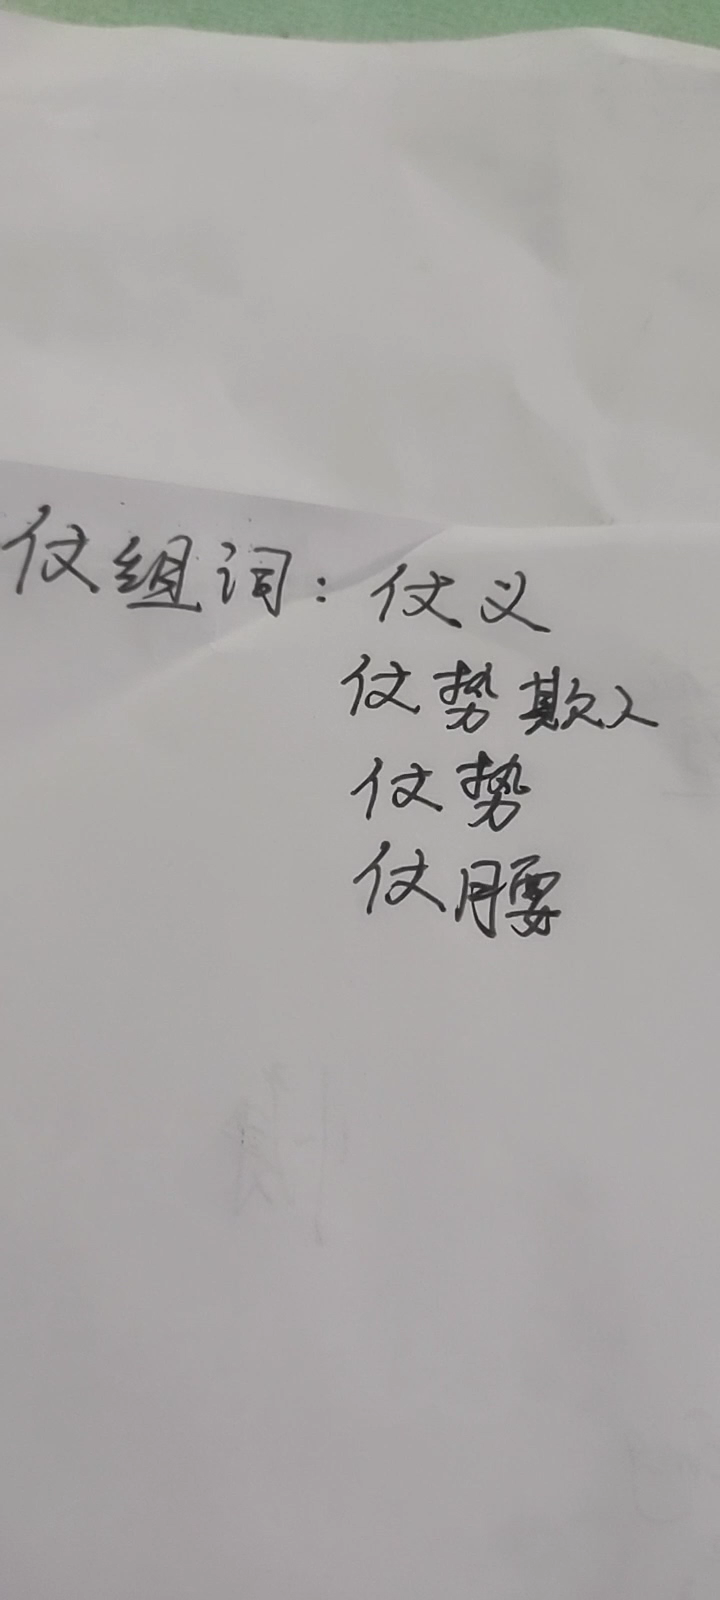 仗组词：仗义
仗势欺人
仗势
仗腰